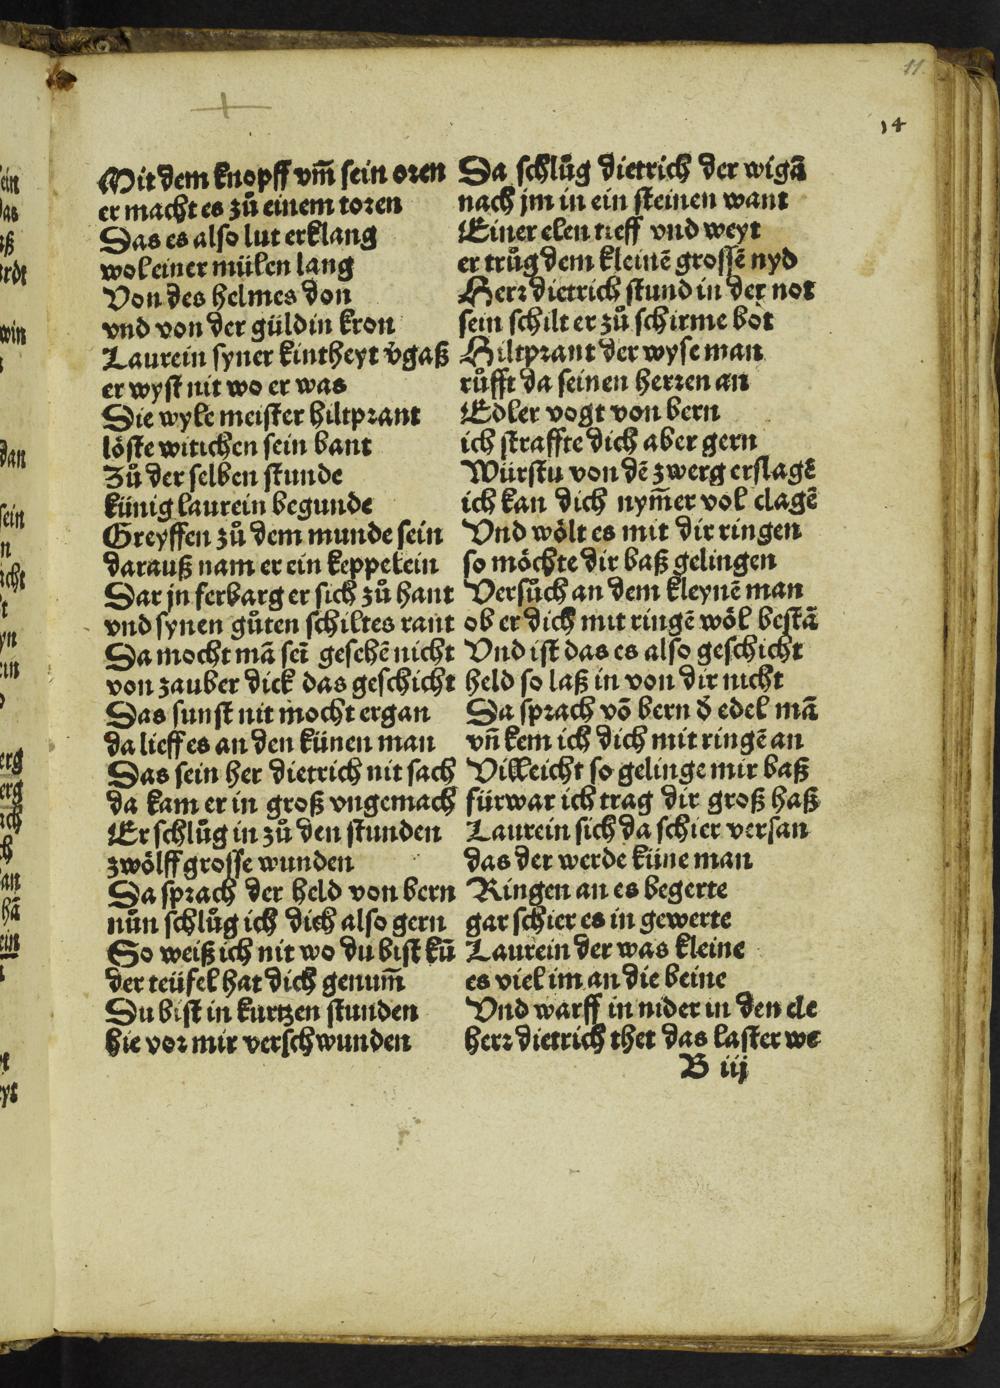 11.
14
Mit dem knopff vm̄ sein oren
er macht es zů einem toren
Das es also lut erklang
wol einer mülen lang
Von des helmes don
vnd von der güldin kron
Laurein syner kintheyt v̈gaß
er wyst nit wo er was
Die wyle meister hiltprant
löste witichen sein bant
Zů der selben stunde
künig laurein begunde
Greyffen zů dem munde sein
darauß nam er ein keppelein
Dar jn ferbarg er sich zů hant
vnd synen gůten schiltes rant
Da mocht mā sei᷑ gesehē nicht
von zauber dick das geschicht
Das sunst nit mocht ergan
da lieff es an den künen man
Das sein her dietrich nit sach
da kam er in groß vngemach
Er schlůg in zů den stunden
zwölff grosse wunden
Da sprach der held von bern
nůn schlůg ich dich also gern
So weiß ich nit wo du bist kū
der teüfel hat dich genum̄
Du bist in kurtzen stunden
hie vor mir verschwunden
Da schlůg dietrich der wigā
nach jm in ein steinen want
Einer elen tieff vnd weyt
er trůg dem kleinē grossē nyd
Herr dietrich stund in der not
sein schilt er zů schirme bot
Hiltprant der wyse man
růfft da seinen herren an
Edler vogt von bern
ich straffte dich aber gern
Würstu von dē zwerg erslagē
ich kan dich nym̄er vol clagē
Vnd wölt es mit dir ringen
so möchte dir baß gelingen
Versůch an dem kleynē man
ob er dich mit ringē wöl bestā
Vnd ist das es also geschicht
held so laß in von dir nicht
Da sprach vō bern d̄ edel mā
vn̄ kem ich dich mit ringē an
Villeicht so gelinge mir baß
fürwar ich trag dir groß haß
Laurein sich da schier versan
das der werde küne man
Ringen an es begerte
gar schier es in gewerte
Laurein der was kleine
es viel im an die beine
Vnd warff in nider in den cle
herr dietrich thet das laster we
B iij